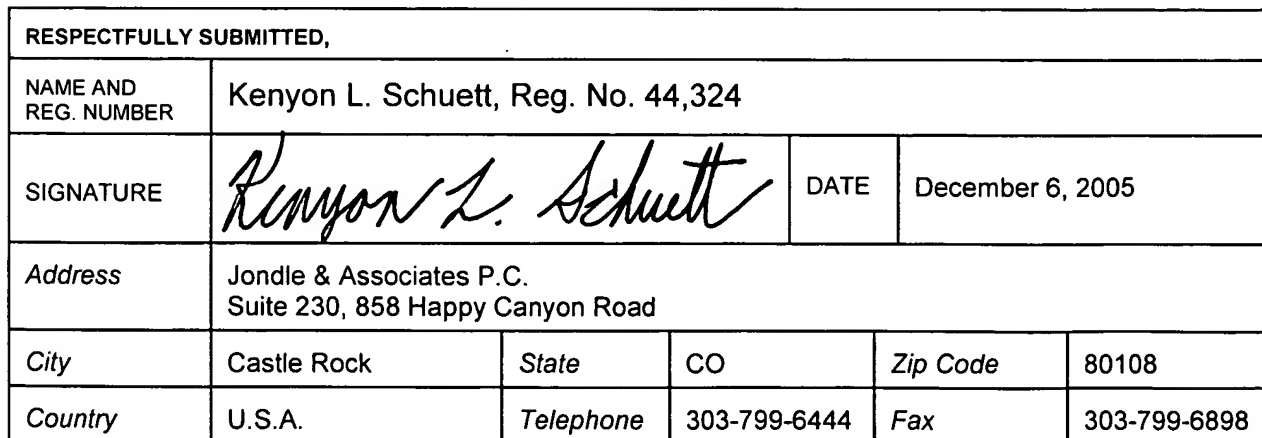 RESPECTFULLY SUBMITTED,
NAME AND
REG. NUMBER
Kenyon L. Schuett, Reg. No. 44,324
SIGNATURE
Kenyon L. Schuett
DATE
December 6, 2005
Address
Jondle & Associates P.C.
Suite 230, 858 Happy Canyon Road
City
Castle Rock
State
CO
Zip Code
80108
Country
U.S.A.
Telephone
303-799-6444
Fax
303-799-6898